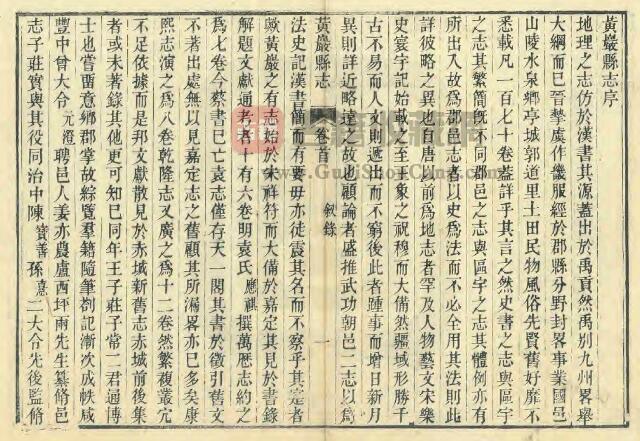 黃巖縣志序
地理之志仿於漢書其源蓋出於禹貢然禹別九州畧舉
大綱而已晉摯虞作畿服經於郡縣分野封畧事業國邑
山陵水泉鄉亭城郭道里土田民物風俗先賢舊好靡不
悉載凡一百七十卷葢詳乎其言之然史書之志與區宇
之志其繁簡旣不同郡邑之志與區宇之志其體例亦有
所出入故爲郡邑志者以史爲法而不必全用其法則此
詳彼略之異也自唐以前爲地志者罕及人物藝文宋樂
史寰宇記始載之至王象之祝穆而大備然疆域形勝千
古不易而人文則遞出而不窮後此者踵事而增日新月
異則詳近略遠之故也顧論者盛推武功朝邑二志以爲
黃巖縣志 卷首 敘錄 一
法史記漢書簡而有要毋亦徒震其名而不察乎其定者
歟黃巖之有志始於宋祥符而大備於嘉定其見於書錄
解題文獻通考者十有六卷明袁氏應祺撰萬歷志約之
爲七卷今蔡書已亡袁志僅存天一閣其書於徵引舊文
不著出處無以見嘉定志之舊顧其所漏畧亦已多矣康
熙志演之爲八卷乾隆志又廣之爲十二卷然繁複叢宂
不足依據而是邦文獻散見於赤城新舊志赤城前後集
者或未著錄其他更可知已同年王子莊子常二君通博
士也嘗畱意鄉郡掌故綜覽羣籍隨筆劄記漸次成帙咸
豐中曾大令元澄聘邑人姜亦農盧西坪兩先生纂脩邑
志子莊實與其役同治中陳寶善孫憙二大令先後監脩
www.GuJiShouCang.com